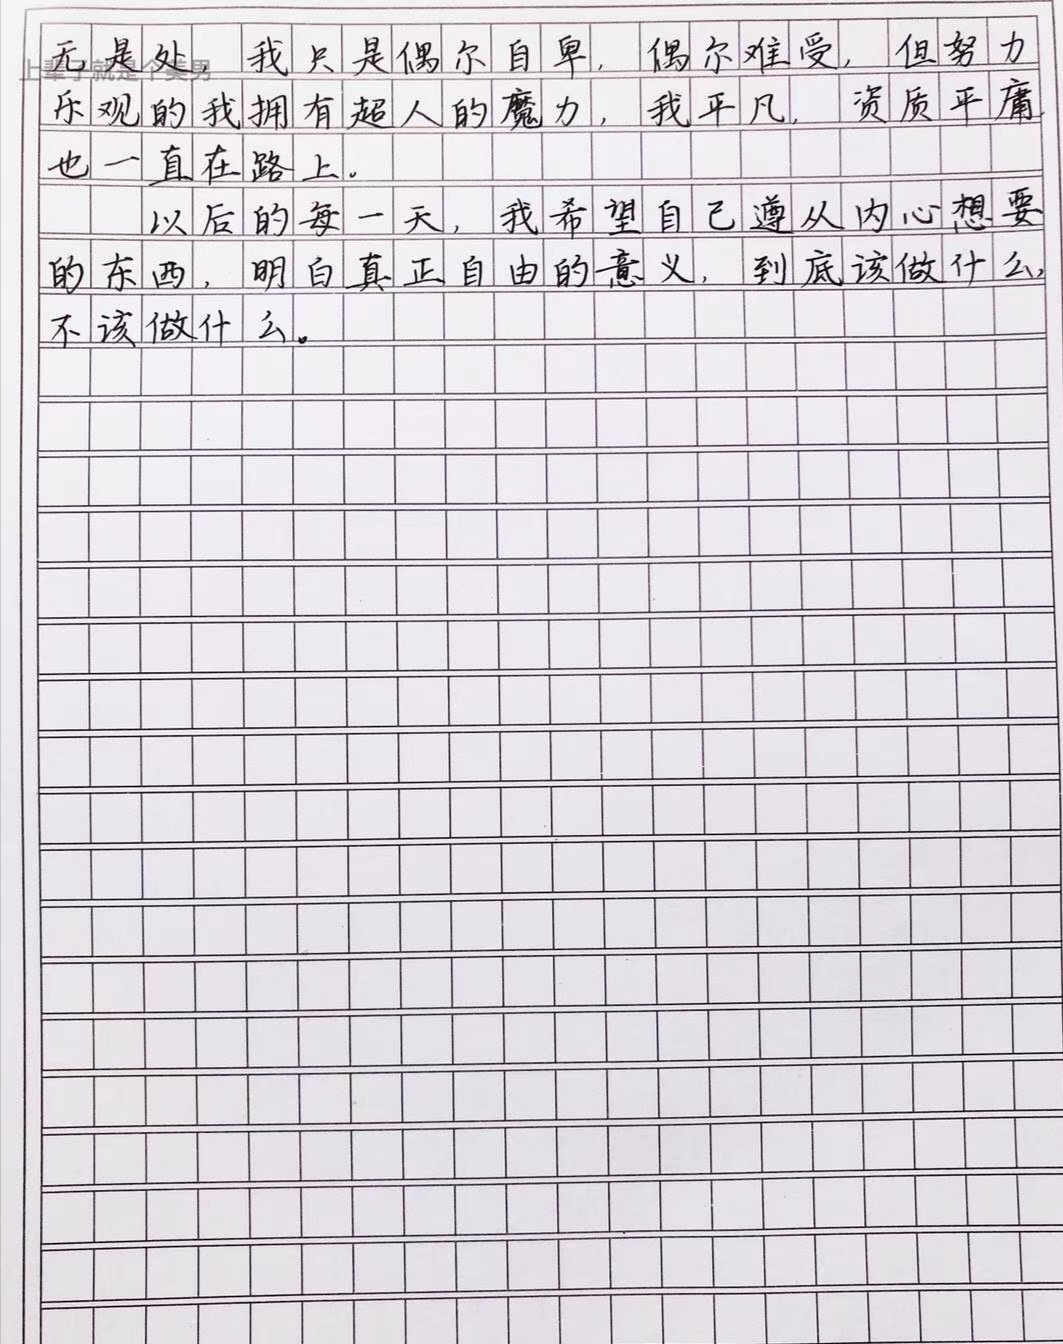 上辈子就是个美男
无是处 我只是偶尔自卑，偶尔难受，但努力
乐观的我拥有超人的魔力，我平凡，资质平庸，
也一直在路上。
以后的每一天，我希望自己遵从内心想要
的东西，明白真正自由的意义，到底该做什么，
不该做什么。